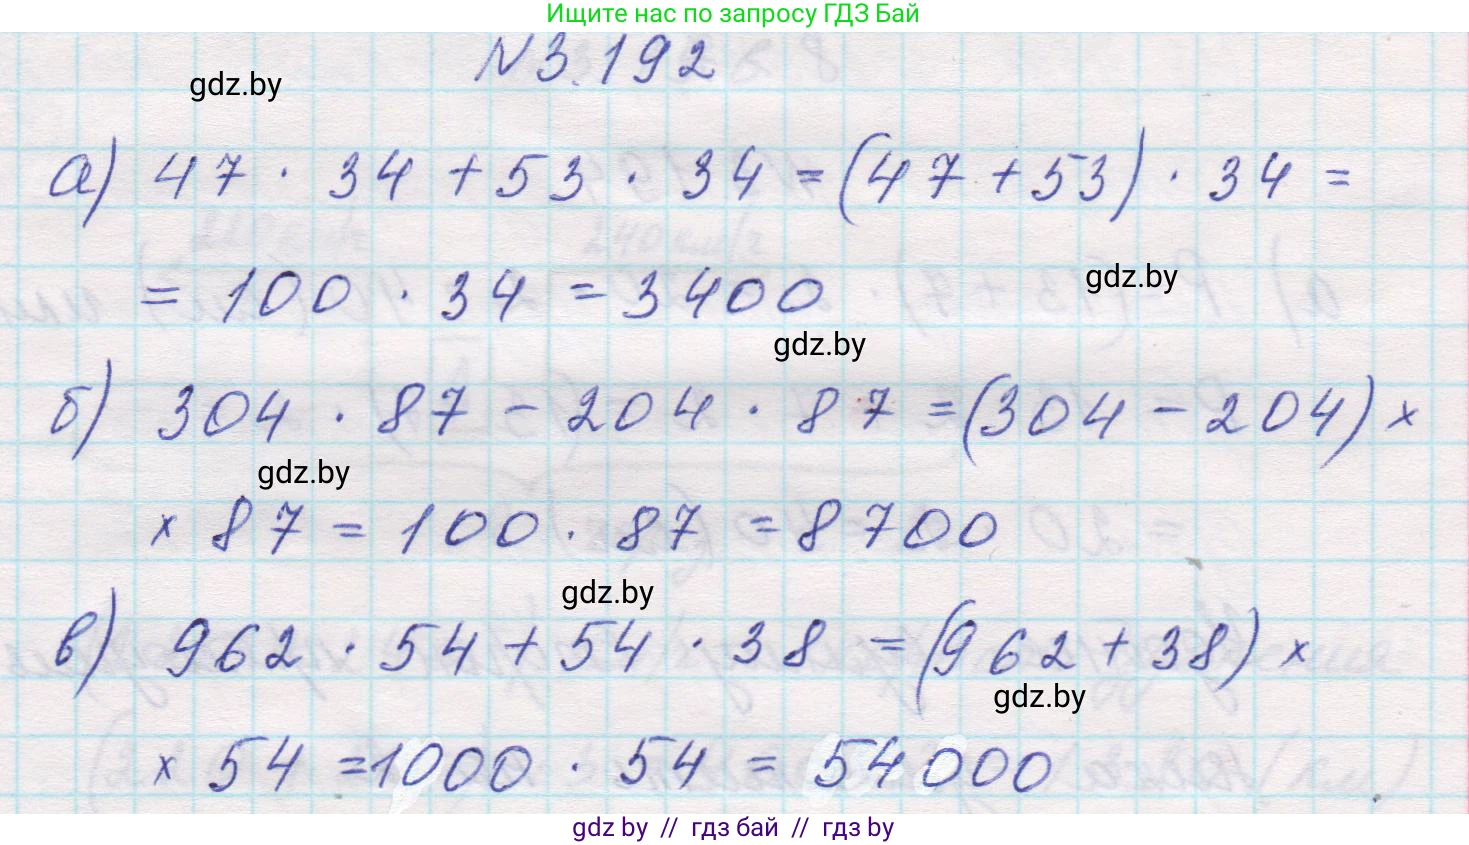 Ищите нас по запросу ГДЗ Бай
N 3.192
gdz.by
а) 47 · 34 + 53 · 34 = (47 + 53) · 34 =
= 100 · 34 = 3400
gdz.by
gdz.by
б) 304 · 87 - 204 · 87 = (304 - 204) ×
gdz.by
× 87 = 100 · 87 = 8700
gdz.by
в) 962 · 54 + 54 · 38 = (962 + 38) ×
gdz.by
× 54 = 1000 · 54 = 54000
gdz by // гдз бай // гдз by